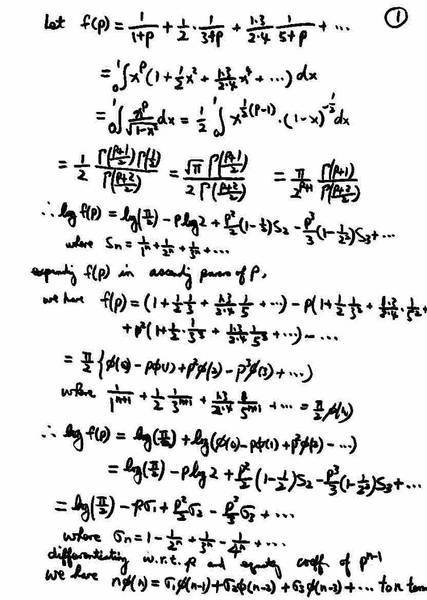 ①
Let f(p) = 1/(1+p) + 1/2 · 1/(3+p) + (1·3)/(2·4) · 1/(5+p) + ...
= ∫₀¹ x^p (1 + 1/2 x² + (1·3)/(2·4) x⁴ + ...) dx
= ∫₀¹ x^p/√(1-x²) dx = 1/2 ∫₀¹ x^(1/2(p-1)) · (1-x)^(-1/2) dx
= 1/2 Γ((p+1)/2) Γ(1/2) / Γ((p+2)/2) = √π Γ((p+1)/2) / 2 Γ((p+2)/2) = π/2^(p+1) Γ(p+1) /
∴ log f(p) = log(π/2) - p log 2 + p²/2 (1-1/2) S₂ - p³/3 (1-1/2²) S₃ + ...
where Sn = 1/1ⁿ + 1/2ⁿ + 1/3ⁿ + ...
f(p) in powers of p,
we have f(p) = (1 + 1/2 1/3 + (1·3)/(2·4) 1/5 + ...) - p(1 + 1/2 1/3² + (1·3)/(2·4) · 1/5² +
+ p²(1 + 1/2 · 1/3³ + (1·3)/(2·4) 1/5³ + ...) - ...
= π/2 {φ(0) - pφ(1) + p²φ(2) - p³φ(3) + ...}
where 1/1^(n+1) + 1/2 1/3^(n+1) + (1·3)/(2·4) /5^(n+1) + ... = π/2 φ(n)
∴ log f(p) = log(π/2) + log(φ(0) - pφ(1) + p²φ(2) - ...)
= log(π/2) - p log 2 + p²/2 (1-1/2) S₂ - p³/3 (1-1/2²) S₃ + ...
= log(π/2) - pσ₁ + p²/2 σ₂ - p³/3 σ₃ + ...
where σn = 1 - 1/2ⁿ + 1/3ⁿ - 1/4ⁿ + ...
differentiating w.r.t. p and equating coeff. of p^(n-1)
we have nφ(n) = σ₁φ(n-1) + σ₂φ(n-2) + σ₃φ(n-3) + ... to n